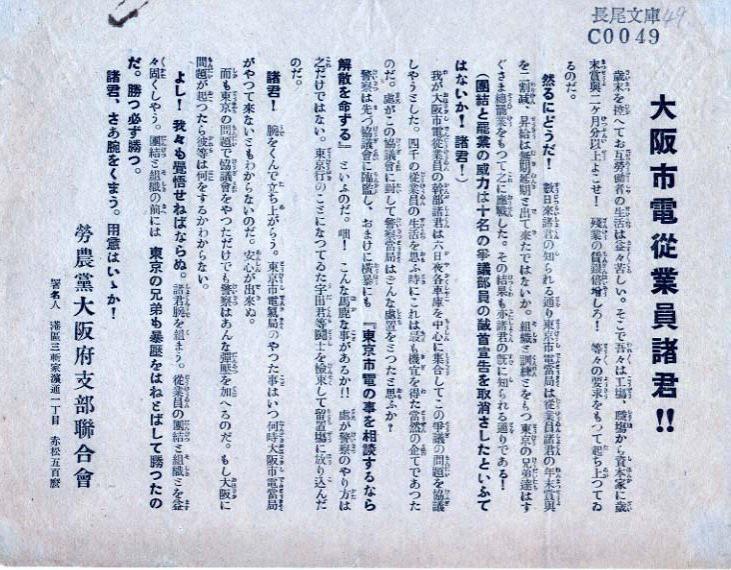 長尾文庫 49
C0049
大阪市電從業員諸君!!
歲末を控へてお互勞働者の生活は益々苦しい。そこで吾々は工場、職場から資本家に歲
末賞與二ケ月分以上よこせ! 殘業の賃銀倍增しろ! 等々の要求をもつて起ち上つてゐ
るのだ。
然るにどうだ! 數日來諸君の知られる通り東京市電當局は從業員諸君の年末賞與
を二割減、昇給は無期延期と出て來たではないか。組織と訓練とをもつ東京の兄弟達はす
ぐさま總罷業をもつて之に應戰した。その結果も亦諸君の旣に知られる通りである!
(團結と罷業の威力は十名の爭議部員の馘首宣告を取消さしたといふで
はないか! 諸君!)
我が大阪市電從業員の幹部諸君は六日夜各車庫を中心に集合してこの爭議の問題を協議
しやうとした。四千の從業員の生活を思ふ時にこれは最も機宜を得た當然の企てであつた
のだ。處がこの協議會に對して警察當局はどんな處置をとつたと思ふか?
警察は先づ協議會に臨監し、おまけに橫暴にも 『東京市電の事を相談するなら
解散を命ずる』といふのだ。咽! こんな馬鹿な事があるか!! 處が警察のやり方は
之だけではない。東京行のことになつてゐた宇田君等鬪士を檢束して留置場に放り込んだ
のだ。
諸君! 腕をくんで立ち上がらう。東京市電氣局のやつた事はいつ何時大阪市電當局
がやつて來ないともわからないのだ。安心が出來ぬ。
而も東京の問題で協議會をやつただけでも警察はあんな彈壓を加へるのだ。もし大阪に
問題が起つたら彼等は何をするかわからない。
よし! 我々も覺悟せねばならぬ。諸君腕を組まう。從業員の團結と組織とを益
々固くしやう。團結と組織の前には 東京の兄弟も暴壓をはねとばして勝つたの
だ。勝つ必ず勝つ。
諸君、さあ腕をくまう。用意はいゝか!
勞農黨大阪府支部聯合會
署名人 港區三軒家濱通一丁目 赤松五百麿